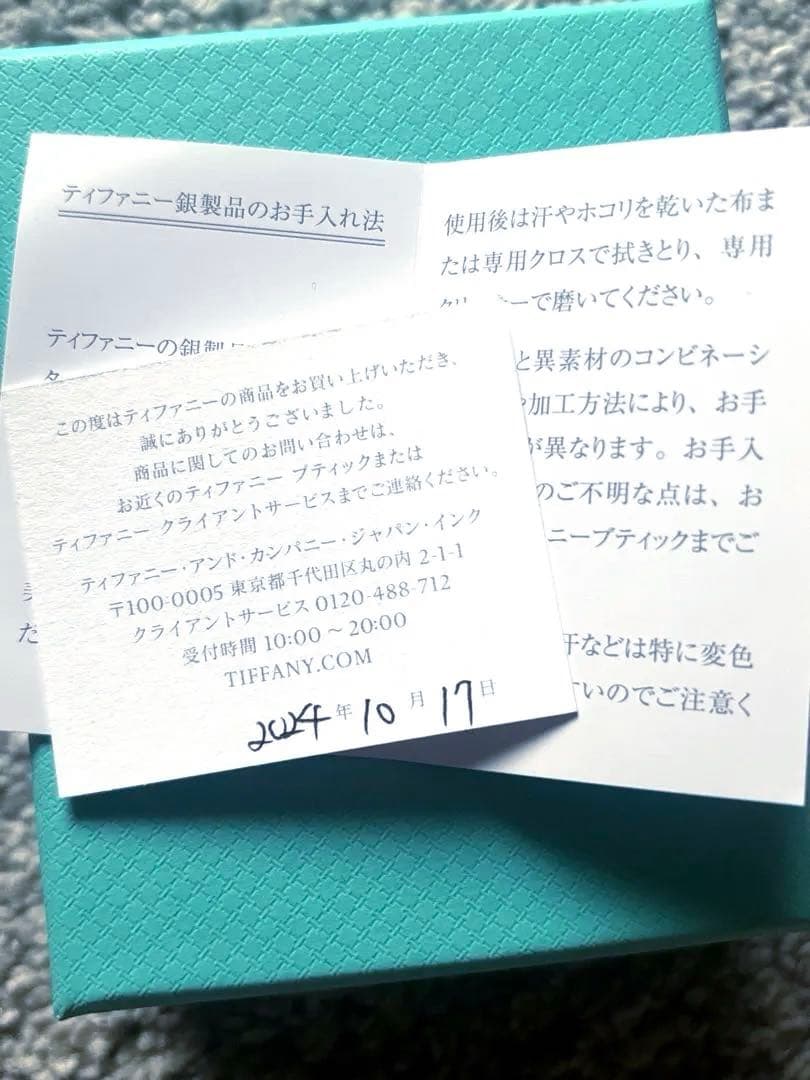 ティファニー銀製品のお手入れ法
ティファニーの銀製
使用後は汗やホコリを乾いた布ま
たは専用クロスで拭きとり、専用
ーで磨いてください。
と異素材のコンビネーシ
加工方法により、お手
が異なります。お手入
のご不明な点は、お
ニーブティックまでご
汗などは特に変色
すいのでご注意く
この度はティファニーの商品をお買い上げいただき、
誠にありがとうございました。
商品に関してのお問い合わせは、
お近くのティファニー ブティックまたは
ティファニー クライアントサービスまでご連絡ください。
ティファニー・アンド・カンパニー・ジャパン・インク
〒100-0005 東京都千代田区丸の内 2-1-1
クライアントサービス 0120-488-712
受付時間 10:00 ~ 20:00
TIFFANY.COM
2024 年 10 月 17 日